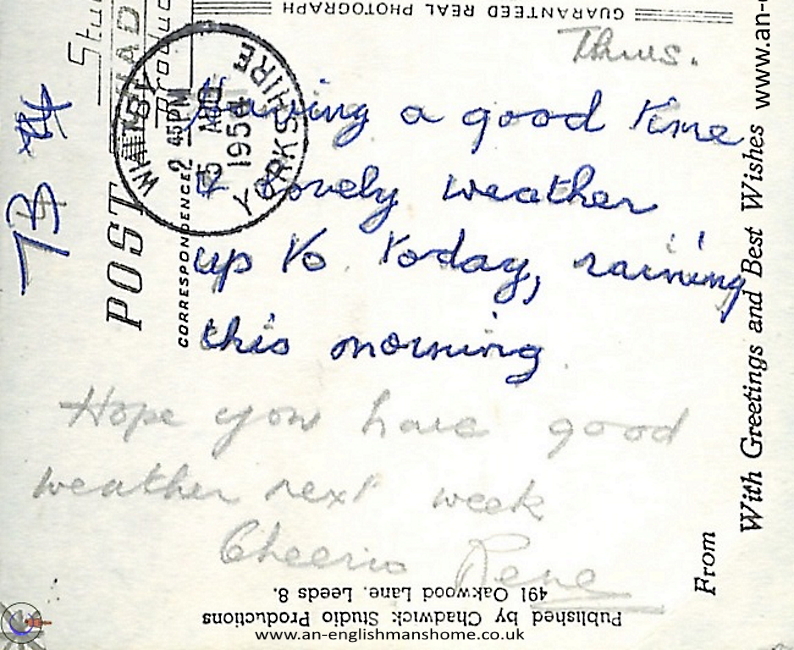 GUARANTEED REAL PHOTOGRAPH
Thurs.
Having a good time
& lovely weather
up to today, raining
this morning.
Hope you have good
weather next week
Cheerio Rene
Published by Chadwick Studio Productions
491 Oakwood Lane. Leeds 8.
www.an-englishmanshome.co.uk
WHITBY
2 45PM
5 AUG
1954
YORKSHIRE
POST
CORRESPONDENCE
From
With Greetings and Best Wishes
www.an-e